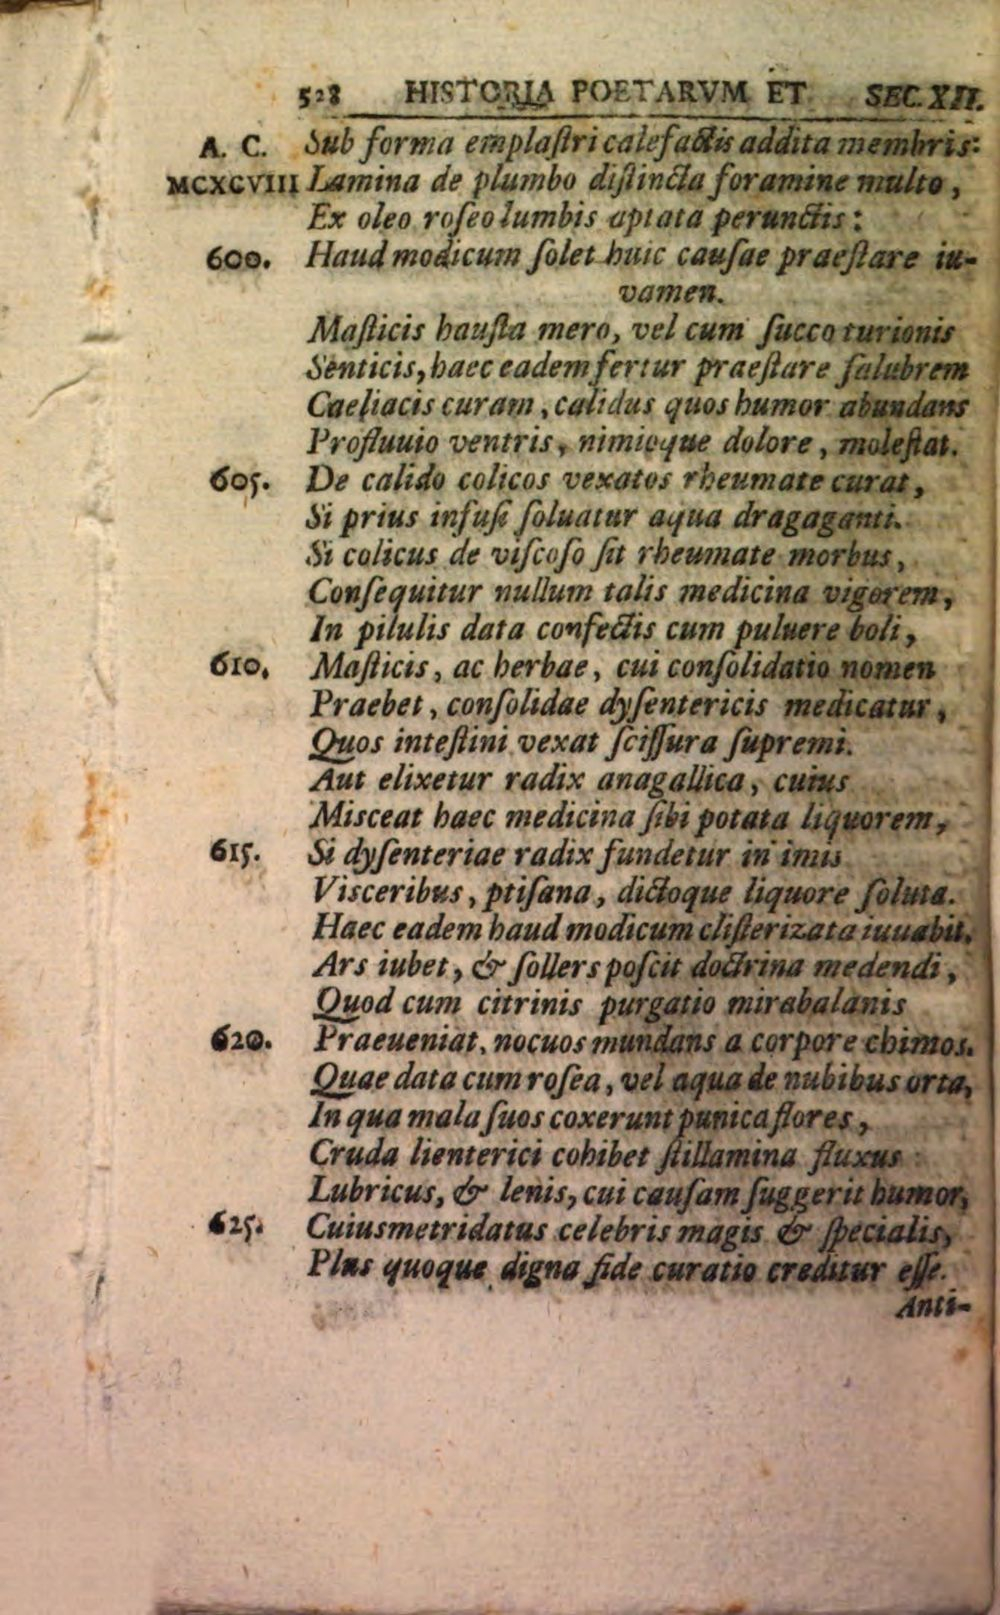 528 HISTORIA POETARVM ET SEC. XII.
A. C. Sub forma emplaſtri calefactis addita membris:
MCXCVIII Lamina de plumbo diſtincta foramine multo,
Ex oleo roſeo lumbis aptata perunctis:
600. Haud modicum ſolet huic cauſae praeſtare iu-
vamen.
Maſticis hauſta mero, vel cum ſucco turionis
Senticis, haec eadem fertur praeſtare ſalubrem
Caeliacis curam, calidus quos humor abundans
Profluuio ventris, nimioque dolore, moleſtat.
605. De calido colicos vexatos rheumate curat,
Si prius infuſi ſoluatur aqua dragaganti.
Si colicus de viſcoſo ſit rheumate morbus,
Conſequitur nullum talis medicina vigorem,
In pilulis data confectis cum puluere boli,
610. Maſticis, ac herbae, cui conſolidatio nomen
Praebet, conſolidae dyſentericis medicatur,
Quos inteſtini vexat ſciſſura ſupremi.
Aut elixetur radix anagallica, cuius
Misceat haec medicina ſibi potata liquorem,
615. Si dyſenteriae radix fundetur in imis
Visceribus, ptiſana, dictoque liquore ſoluta.
Haec eadem haud modicum cliſterizata iuuabit.
Ars iubet, & ſollers poſcit doctrina medendi,
Quod cum citrinis purgatio mirabalanis
620. Praeueniat, nocuos mundans a corpore chimos.
Quae data cum roſea, vel aqua de nubibus orta,
In qua mala ſuos coxerunt punica flores,
Cruda lienterici cohibet ſtillamina fluxus
Lubricus, & lenis, cui cauſam ſuggerit humor,
625. Cuiusmetridatus celebris magis & ſpecialis,
Plus quoque digna fide curatio creditur eſſe.
Anti-